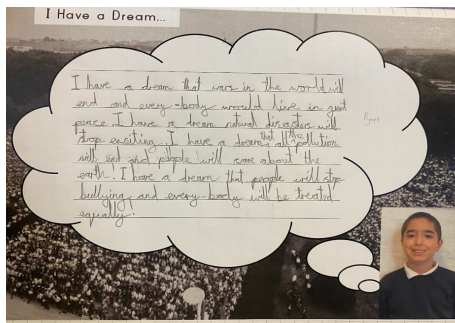 I Have a Dream...
I have a dream that wars in the world will
end and every-body would live in great
peace. I have a dream natural disasters will
stop exsiting. I have a dream that all the pollution
will end and people will care about the
earth! I have a dream that people will stop
bullying and every-body will be treated
equally!